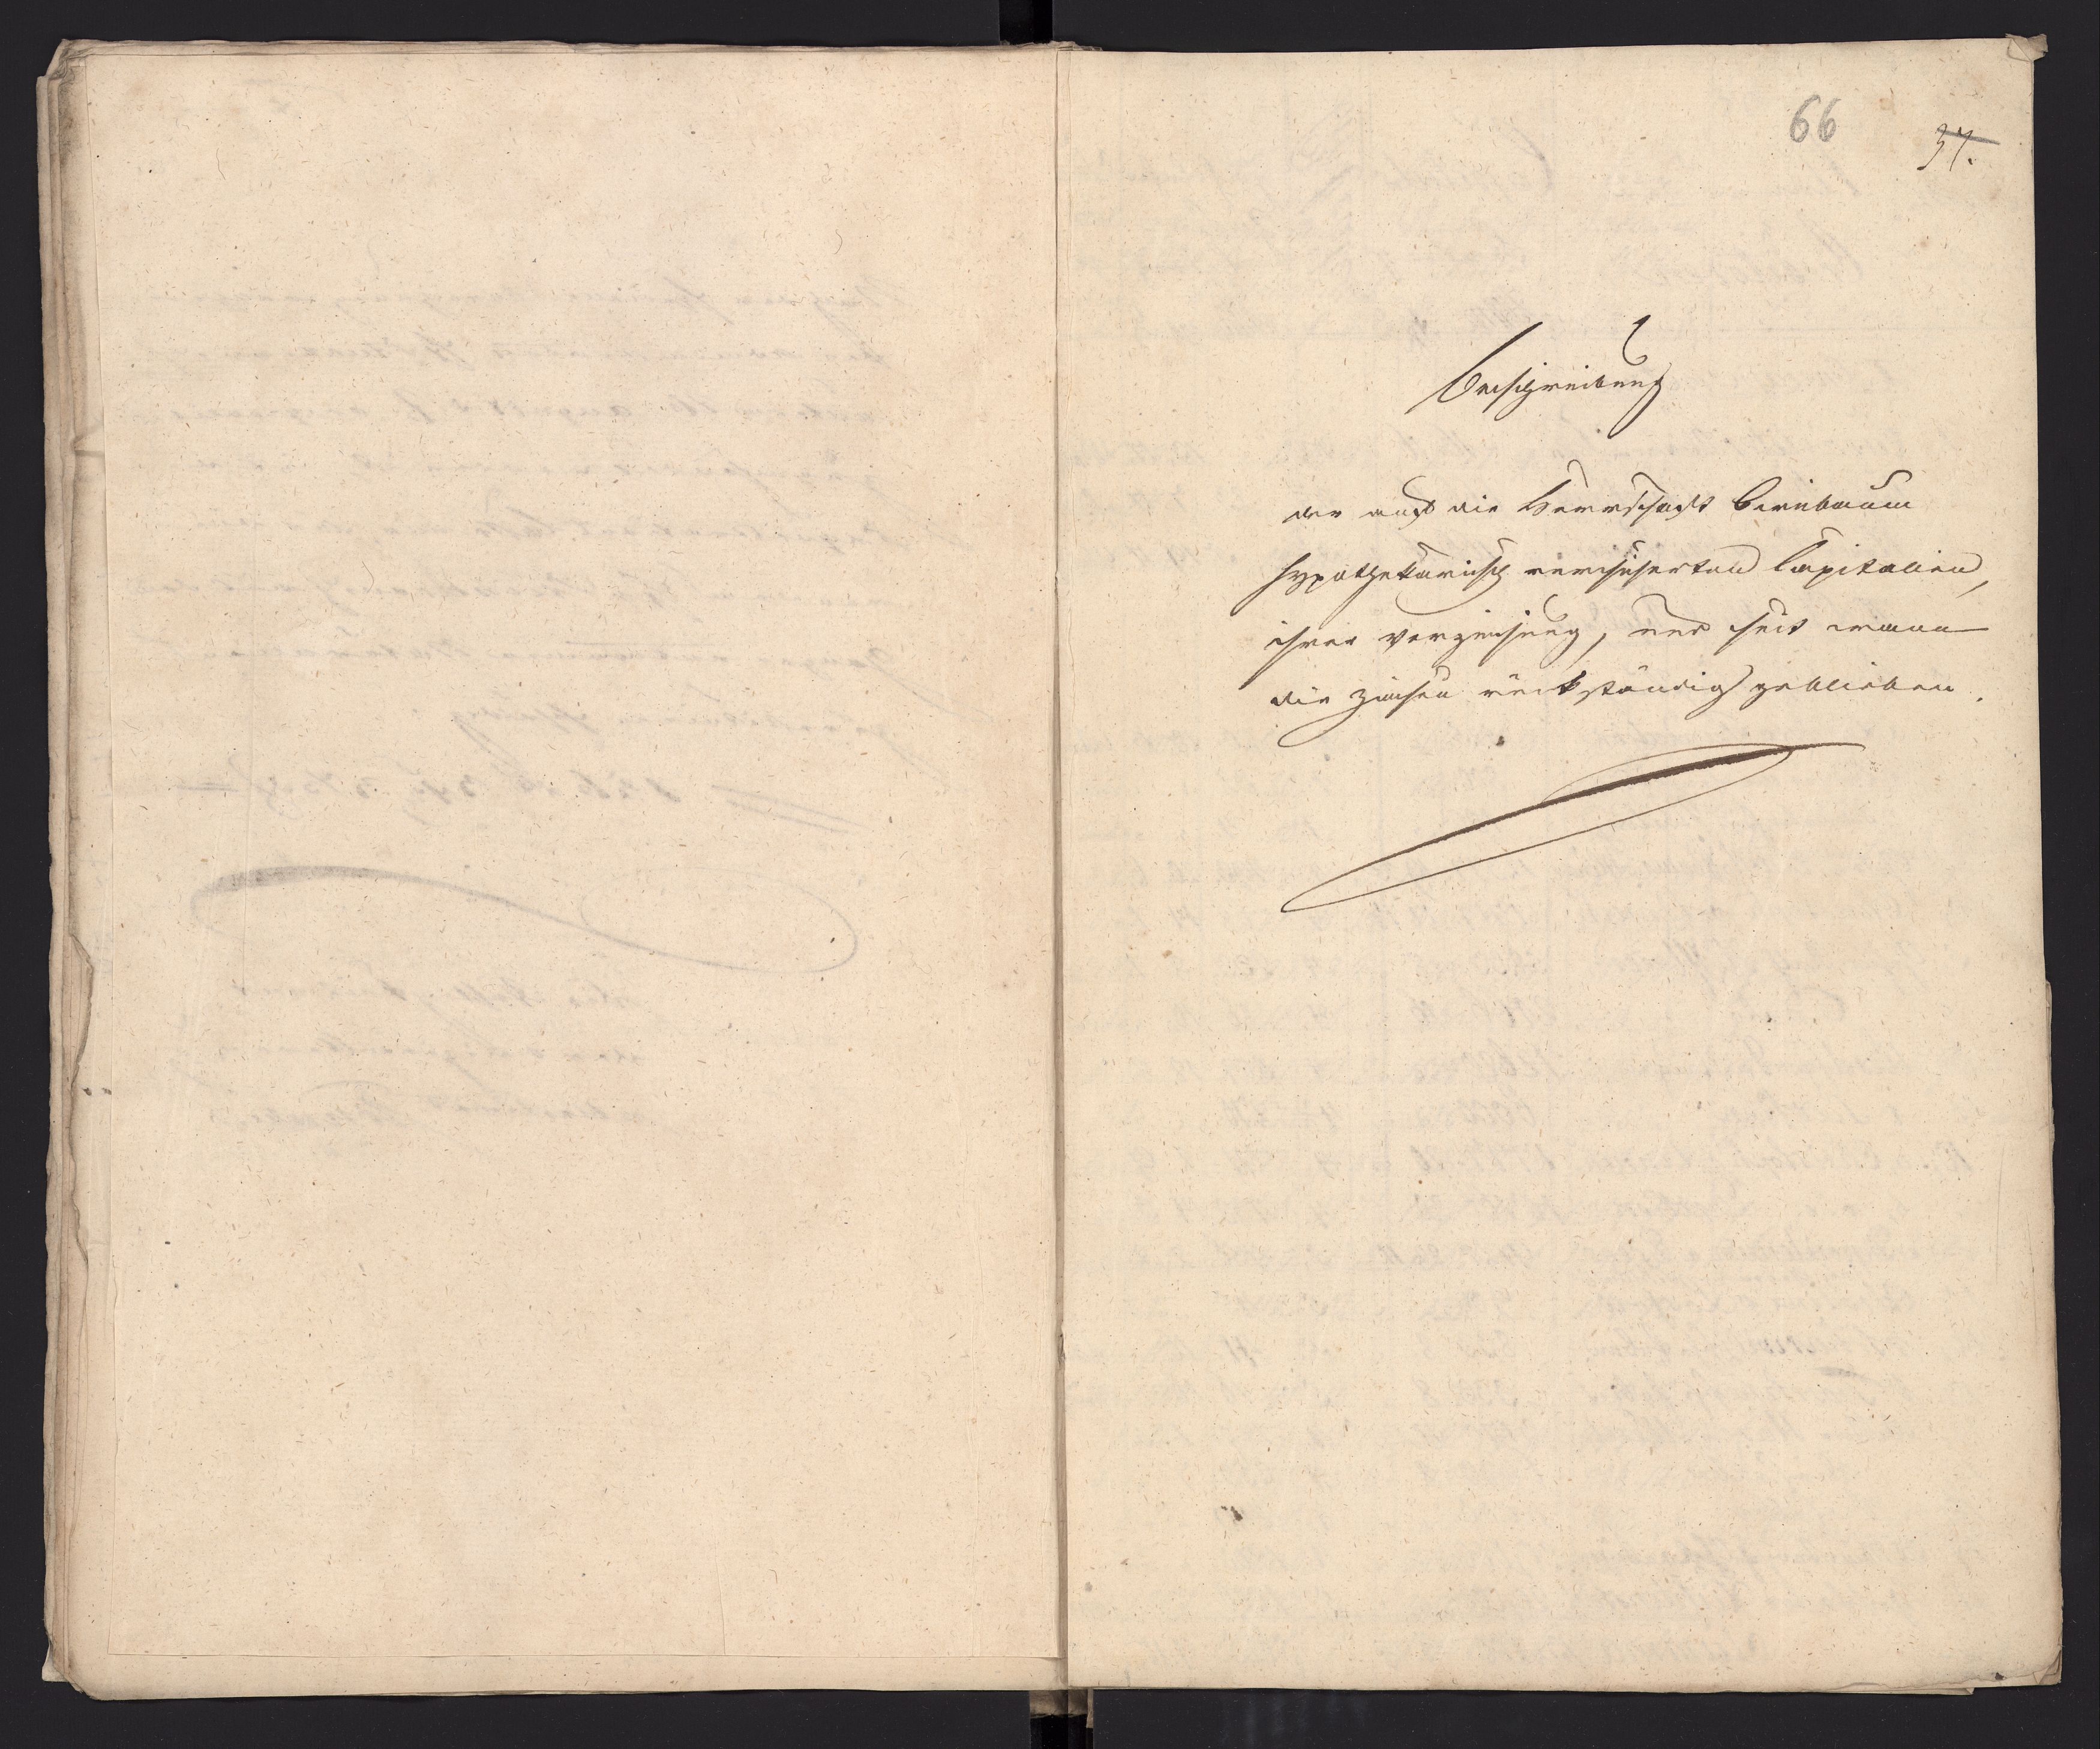 66
37.
Beschreibung
der auf die Herrschaft Birnbaum
hypothekarisch versicherten Capitalien,
ihrer Verzinsung, und seit wann
die Zinsen rückständig geblieben.